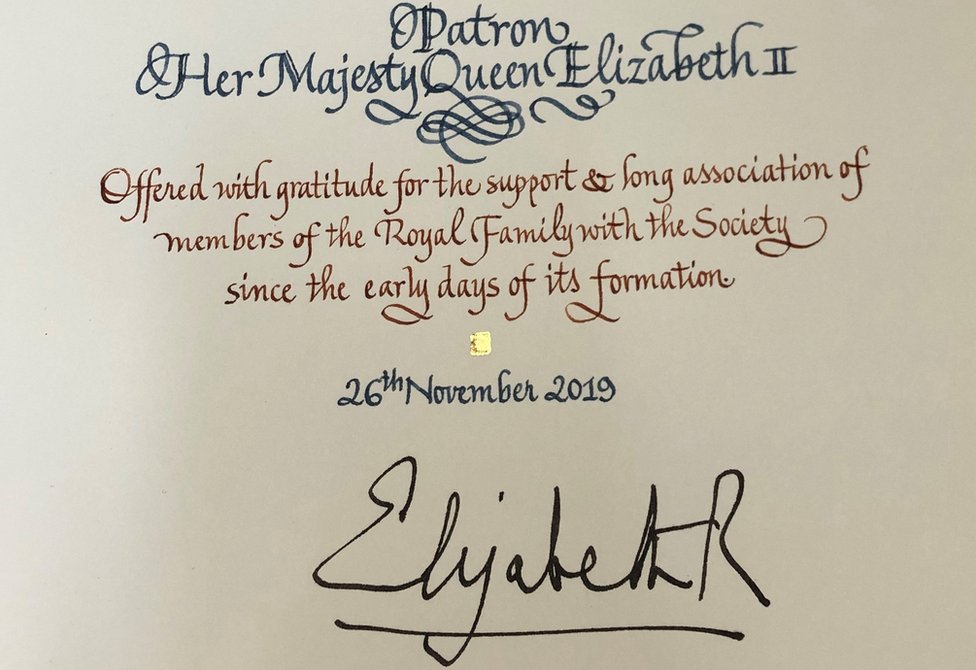 Patron
Her Majesty Queen Elizabeth II
Offered with gratitude for the support & long association of
members of the Royal Family with the Society
since the early days of its formation
26th November 2019
Elizabeth R